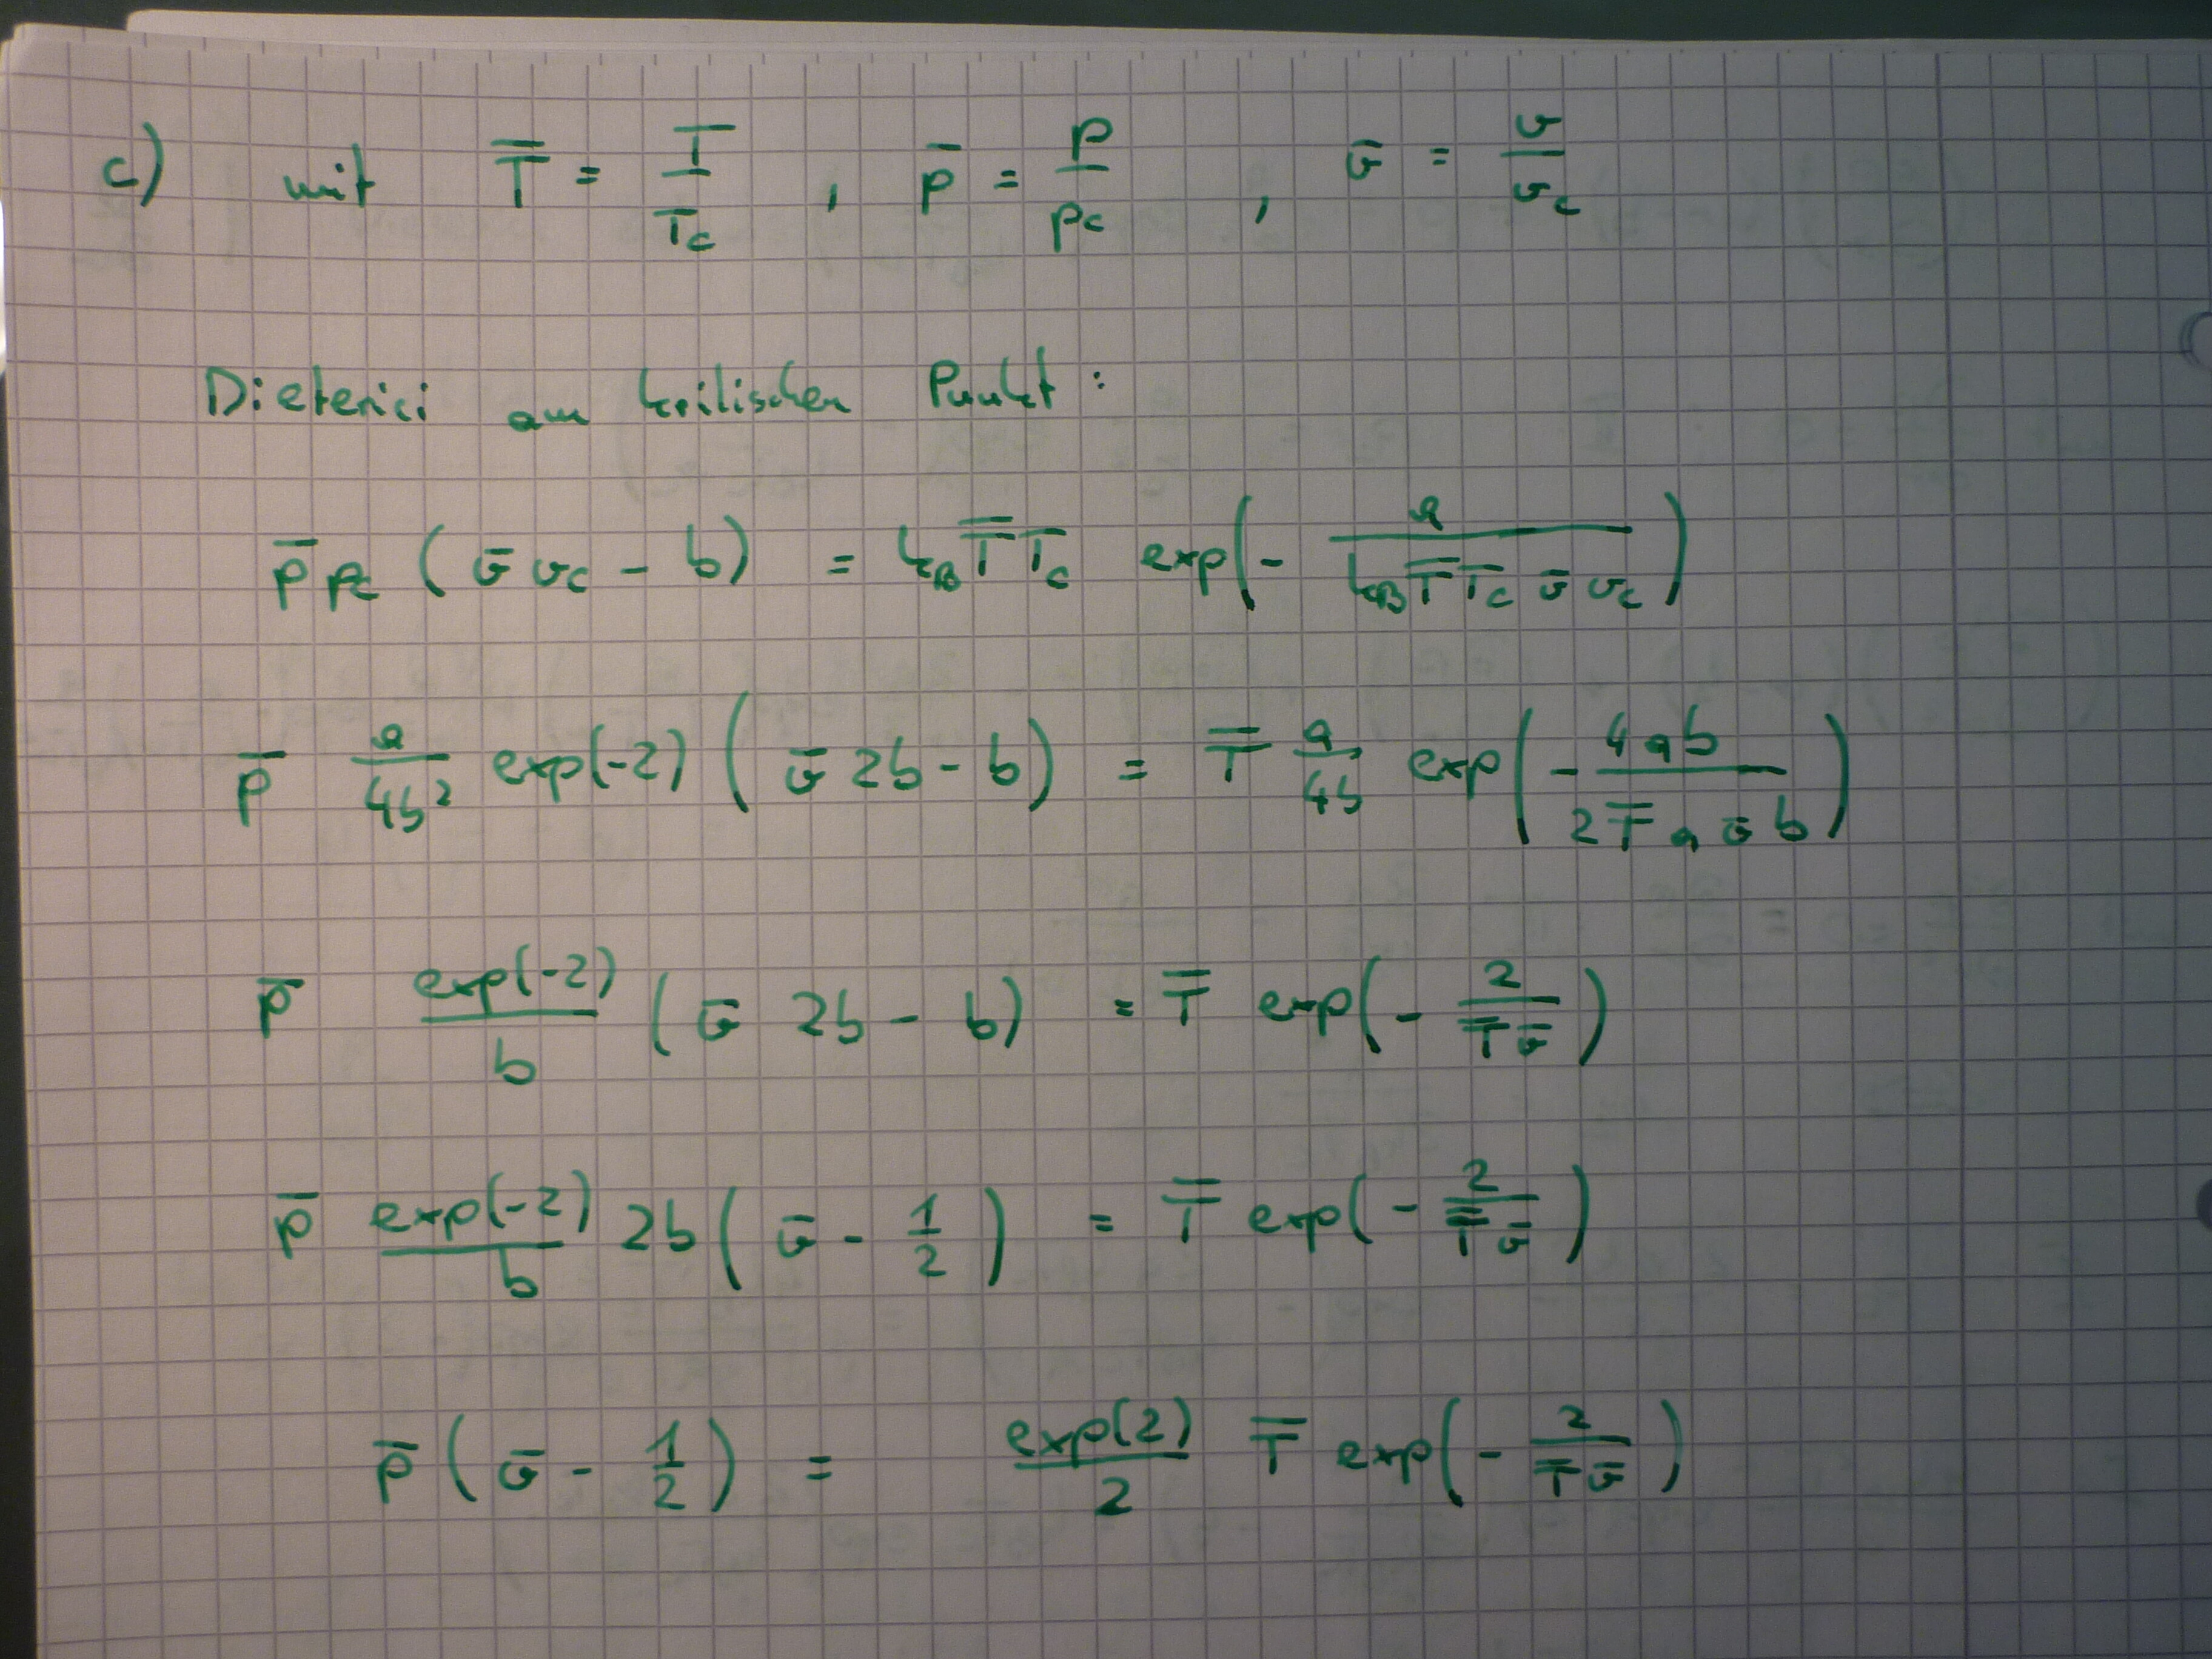 c) mit T̄ = T/T_c , p̄ = p/p_c , v̄ = v/v_c
Dieterici am kritischen Punkt:
p̄ p_c ( v̄ v_c − b ) = k_B T̄ T_c exp( − a/(k_B T̄ T_c v̄ v_c) )
p̄ a/(4b²) exp(−2) ( v̄ 2b − b ) = T̄ a/(4b) exp( − 4ab/(2 T̄ a v̄ b) )
p̄ exp(−2)/b ( v̄ 2b − b ) = T̄ exp( − 2/(T̄ v̄) )
p̄ exp(−2)/b 2b ( v̄ − 1/2 ) = T̄ exp( − 2/(T̄ v̄) )
p̄ ( v̄ − 1/2 ) = exp(2)/2 T̄ exp( − 2/(T̄ v̄) )